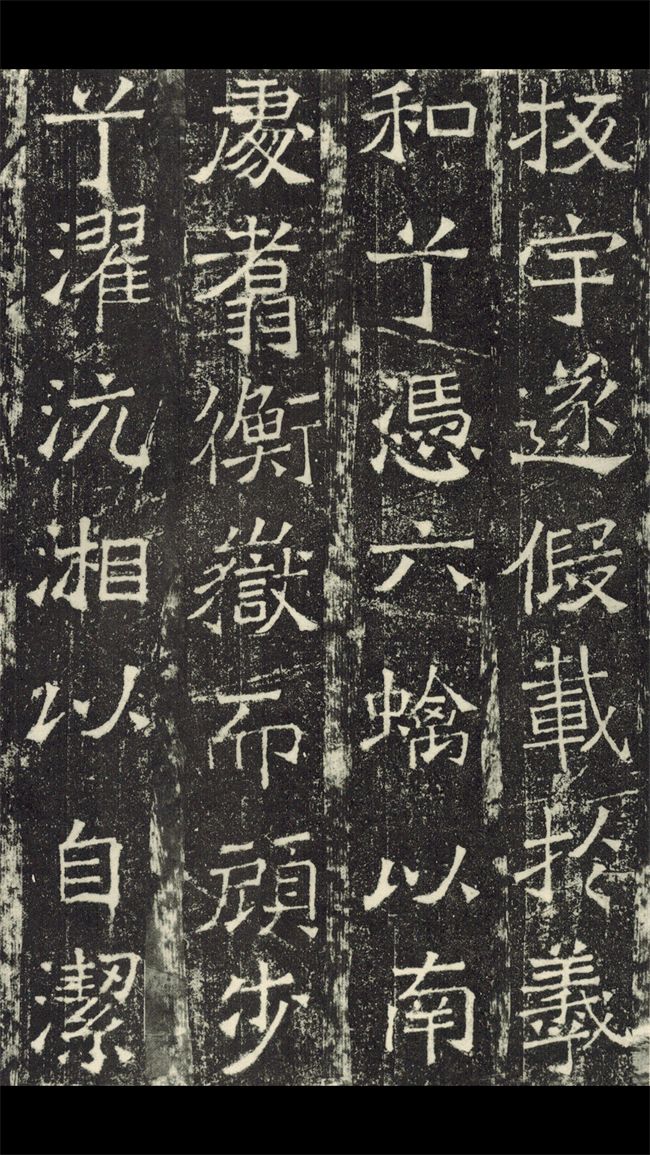 宇遂假載於羲
和兮憑六螭以南
處翥衡嶽而顧步
兮濯沅湘以自潔